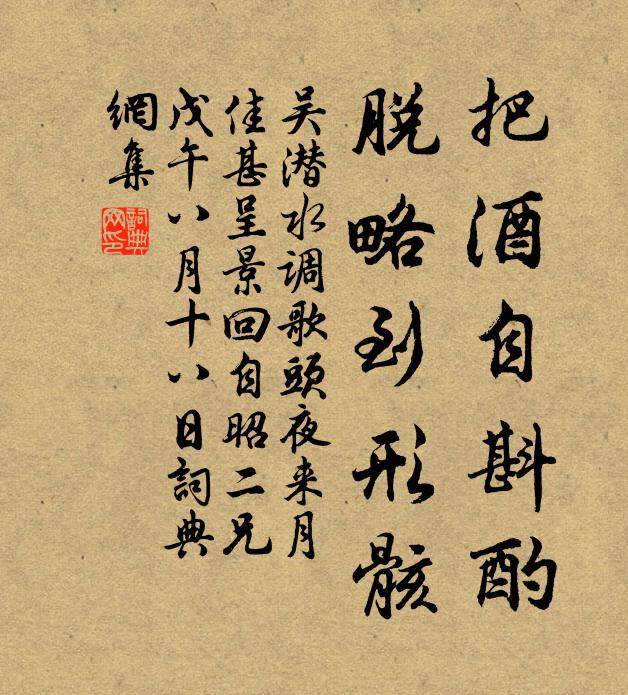 把酒自斟酌
脱略到形骸
吴潜水调歌頭夜来月
佳甚呈景回自昭二兄
戊午八月十八日詞典
網集
詞典
网印